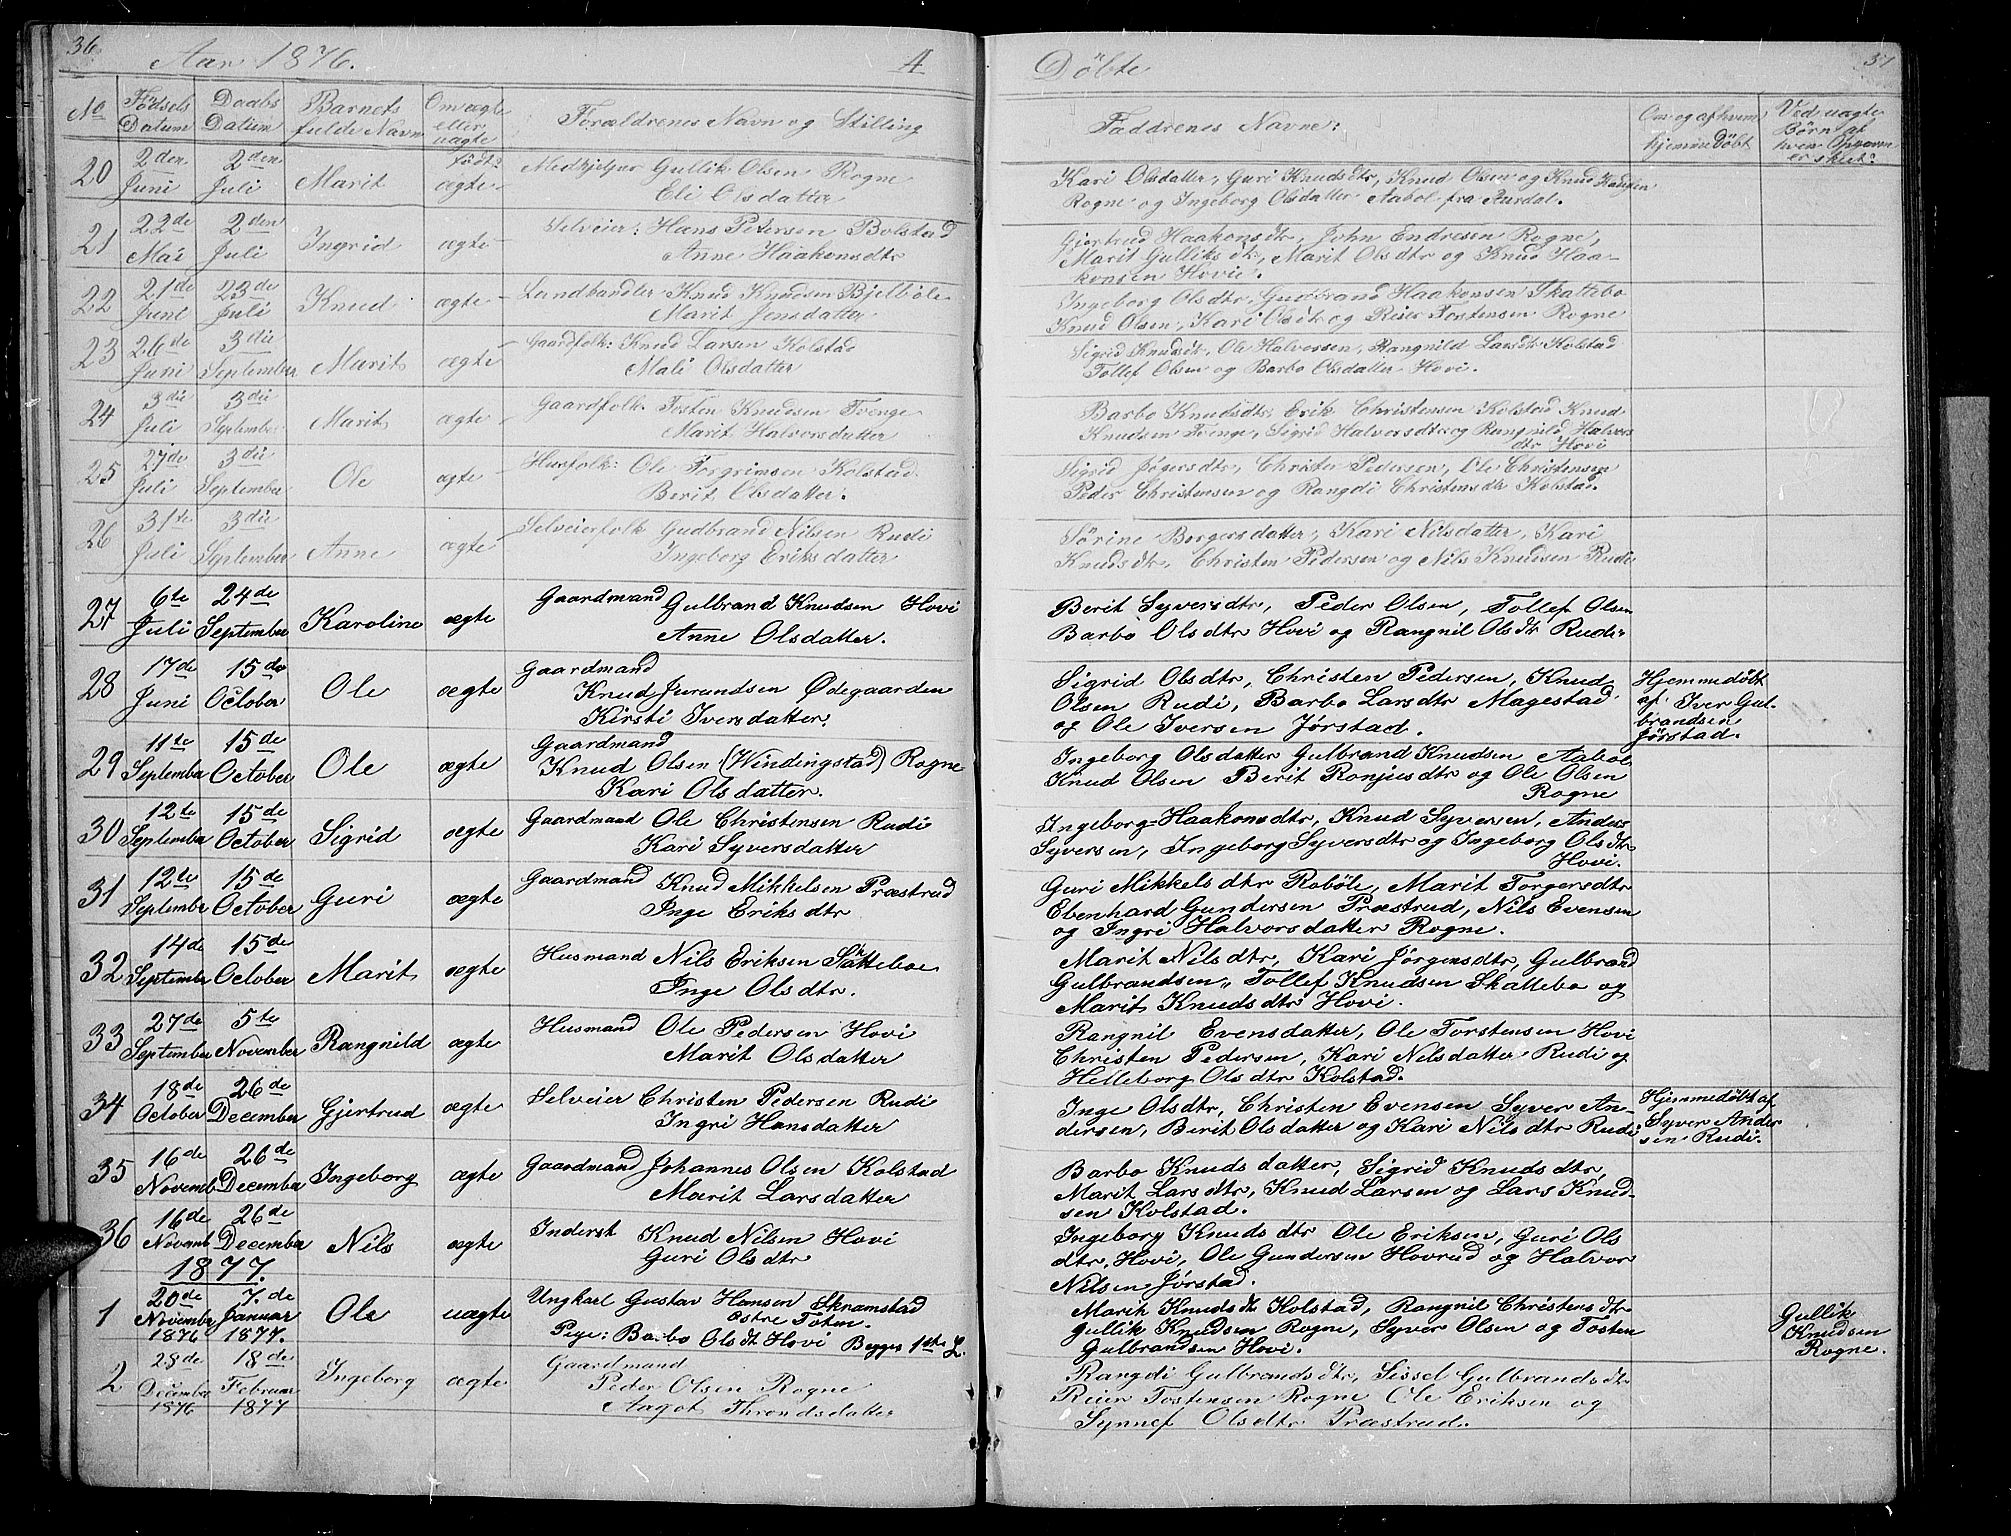 36 Aar 1876. A
No Födsels Datum Daabs Datum Barnets fulde Navn Om ægte eller uægte født Forældrenes Navn og Stilling
20 2den Juni 2den Juli Marit ægte Medhjelper Gullik Olsen Rogne
Eli Olsdatter
21 22de Mai 2den Juli Ingrid ægte Selveier: Hans Petersen Bolstad
Anne Haakonsdtr
22 21de Juni 23de Juli Knud ægte Landhandler Knud Knudsen Bjelbøle
Marit Jensdatter
23 26de Juni 3die September Marit ægte Gaardfolk: Knud Larsen Kolstad
Mali Olsdatter
24 3die Juli 3die September Marit ægte Gaardfolk: Tosten Knudsen Tvenge
Marit Halvorsdatter
25 27de Juli 3die September Ole ægte Husfolk: Ole Torgrimsen Kolstad
Berit Olsdatter.
26 31te Juli 3die September Anne ægte Selveierfolk Gudbrand Nilsen Rudi
Ingeborg Eriksdatter
27 6te Juli 24de September Karoline ægte Gaardmand Gulbrand Knudsen Hovi
Anne Olsdatter.
28 17de Juni 15de October Ole ægte Gaardmand
Knud Jurundsen Ødegaarden
Kirsti Iversdatter.
29 11te September 15de October Ole ægte Gaardmand
Knud Olsen (Windingstad) Rogne
Kari Olsdatter.
30 12te September 15de October Sigrid ægte Gaardmand Ole Christensen Rudi
Kari Syversdatter
31 12te September 15de October Guri ægte Gaardmand Knud Mikkelsen Præstrud
Inge Eriksdtr
32 14de September 15de October Marit ægte Husmand Nils Eriksen Skatteboe
Inge Olsdtr.
33 27de September 5te November Rangnild ægte Husmand Ole Pedersen Hovi
Marit Olsdatter
34 18de October 26de December Gjertrud ægte Selveier Christen Pedersen Rudi
Ingri Hansdatter
35 16de Novemb 26de December Ingeborg ægte Gaardmand Johannes Olsen Kolstad
Marit Larsdatter
36 16de Novemb 26de December Nils ægte Inderst Knud Nilsen Hovi
Guri Olsdtr
1877.
1 20de November 1876 7.de Januar 1877. Ole uægte Ungkarl Gustav Hansen Skramstad
Østre Toten.
Pige: Barbo Olsdtr Hovi Begges 1ste L.
2 28de December 1876 18de Februar 1877 Ingeborg ægte Gaardmand
Peder Olsen Rogne
Aagot Throndsdatter
Döbte 37
Faddrenes Navne: Om og af hvem hjemmedöbt Ved uægte Börn af hvem Opgaven er skeet:
Kari Olsdatter, Guri Knudsdtr, Knud Olsen og Knud Knudsen
Rogne og Ingeborg Olsdatter Aabol fra Aurdal.
Gjertrud Haakonsdtr, John Endresen Rogne,
Marit Gulliksdtr, Marit Olsdtr og Knud Haa-
konsen Hovi.
Ingeborg Olsdtr, Gudbrand Haakonsen Skattebo
Knud Olsen, Kari Olsdtr og Reier Tostensen Rogne
Sigrid Knudsdtr, Ole Halvorsen, Rangnild Larsdtr Kolstad
Tollef Olsen og Barbo Olsdatter Hovi.
Barbo Knudsdtr Erik Christensen Kolstad Knud
Knudsen Tvenge, Sigrid Halvorsdtr og Rangnild Halvors
dtr Hovi
Sigrid Jögersdtr, Christen Pedersen, Ole Christensen
Peder Christensen og Rangdi Christensdtr Kolstad.
Sörine Borgersdatter, Kari Nilsdatter, Kari
Knudsdtr, Christen Pedersen og Nils Knudsen Rudi
Berit Syversdtr, Peder Olsen, Tollef Olsen
Barbo Olsdtr Hovi og Rangnil Olsdtr Rudi
Sigrid Olsdtr, Christen Pedersen, Knud
Olsen Rudi, Barbo Larsdtr Magestad
og Ole Iversen Jørstad.
Hjemmedöbt
af Iver Gul-
brandsen
Jørstad.
Ingeborg Olsdatter Gulbrand Knudsen Aabol
Knud Olsen Berit Ronjusdtr og Ole Olsen
Rogne
Ingeborg Haakonsdtr, Knud Syversen, Anders
Syversen, Ingeborg Syversdtr og Ingeborg Olsdtr
Hovi.
Guri Mikkelsdtr Roböle, Marit Torgersdtr
Ebenhard Gundersen Præstrud, Nils Evensen
og Ingri Halvorsdatter Rogne.
Marit Nilsdtr, Kari Jørgensdtr, Gulbrand
Gulbrandsen, Tollef Knudsen Skattebo og
Marit Knudsdtr Hovi.
Rangnil Evensdatter, Ole Torstensen Hovi
Christen Pedersen, Kari Nilsdatter Rudi og
Helleborg Olsdtr Kolstad.
Inge Olsdtr, Christen Evensen Syver An-
dersen, Berit Olsdatter og Kari Nilsdtr Rudi
Hjemmedöbt af
Syver Ander
sen Rudi.
Barbo Knudsdatter, Sigrid Knudsdtr,
Marit Larsdtr, Knud Larsen og Lars Knud-
sen Kolstad.
Ingeborg Knudsdtr Ole Eriksen, Guri Ols
dtr, Hovi, Ole Gundersen Hovrud og Halvor
Nilsen Jørstad.
Marit Knudsdtr Kolstad, Rangnil Christensdtr
Gullik Knudsen Rogne, Syver Olsen og Tosten
Gulbrandsen Hovi.
Gullik
Knudsen
Rogne.
Rangdi Gulbrandsdtr, Sissel Gulbrandsdtr
Reier Tostensen Rogne Ole Eriksen og
Synnef Olsdtr Præstrud.